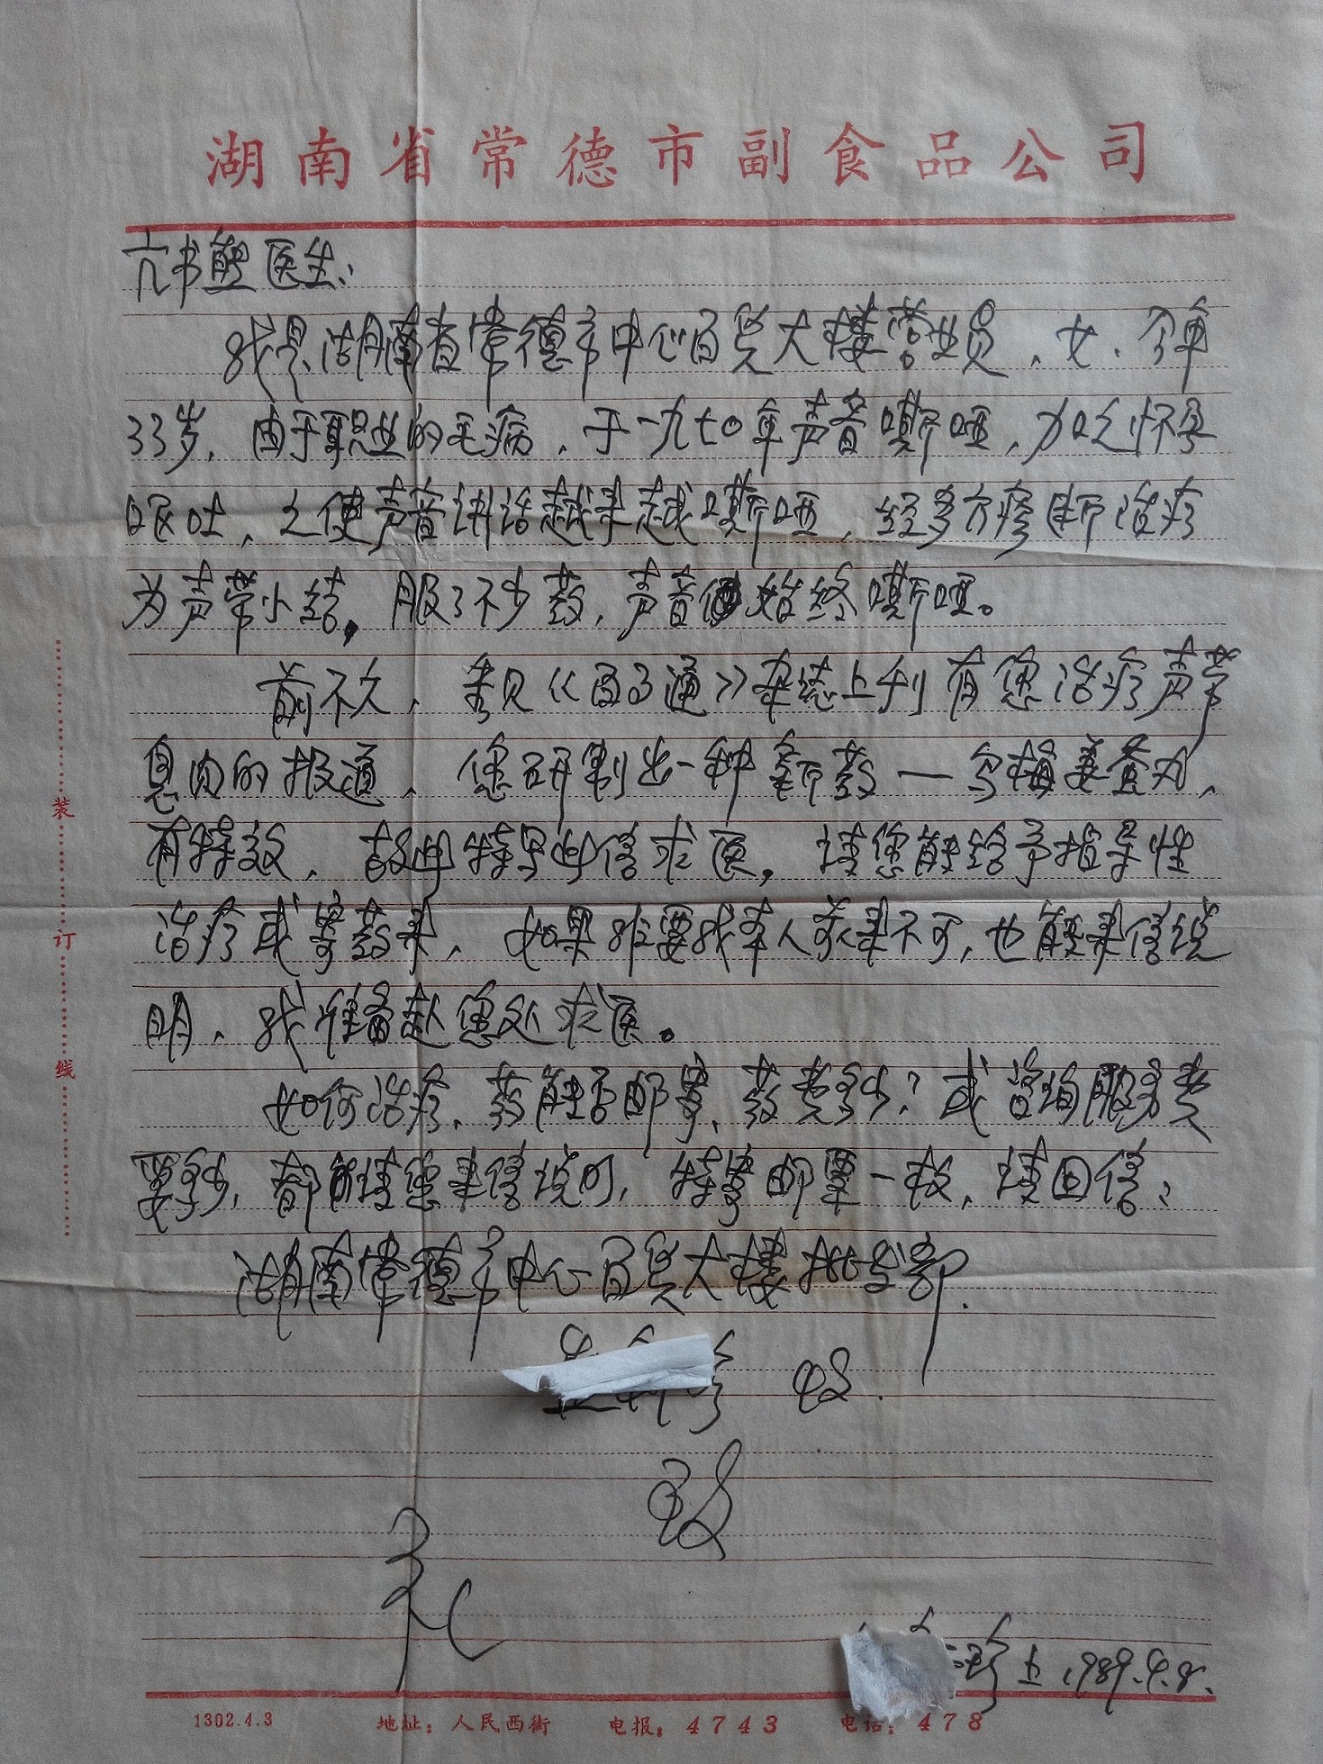 湖南省常德市副食品公司
亢书能医生:
我是湖南省常德市中心百货大楼营业员、女、今年
33岁,由于职业的毛病,于一九七〇年声音嘶哑,加之怀孕
呕吐,之使声音讲话越来越嘶哑,经多方疹断治疗
为声带小结,服了不少药,声音始终嘶哑。
前不久,看见《百事通》杂志上刊有您治疗声带
息肉的报道,您研制出一种新药—乌梅姜蚕丸,
有特效,故特写此信求医,请您能给予指导性
治疗或寄药来,如果非要我本人前来不可,也能来信说
明,我准备赴您处求医。
如何治疗、药能否邮寄、药费多少?或咨询服务费
要多少,都请您来信说明,特寄邮票一枚,请回信:
湖南常德市中心百货大楼批发部.
收.
致
礼
上 1989.4.8.
装
订
线
1302.4.3 地址:人民西街 电报:4743 电话:478